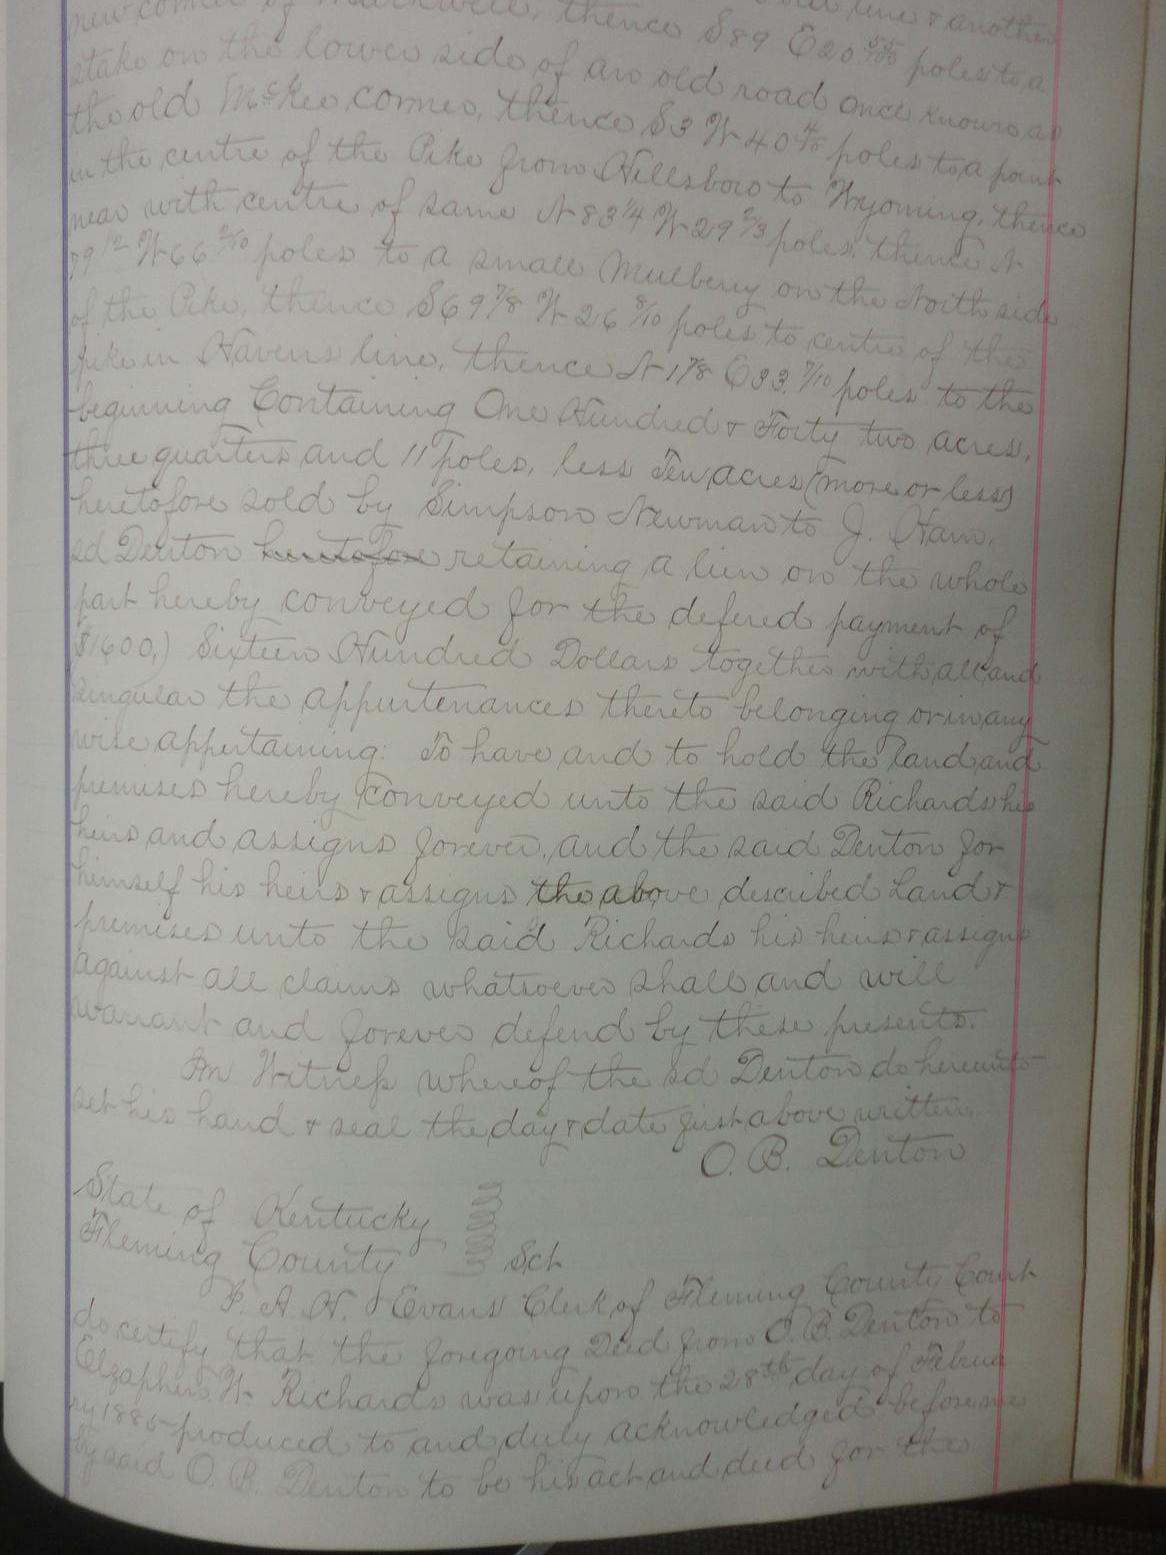 new corner of Markwell, thence S 89 E 20 55/100 poles to a
stake on the lower side of an old road once known as
the old McKee corner, thence S 3 W 40 4/5 poles to a point
in the centre of the Pike from Hillsboro to Wyoming, thence
near with centre of same N 83 1/4 W 29 2/3 poles, thence N
79 1/2 W 66 2/10 poles to a small Mulberry on the North side
of the Pike, thence S 69 7/8 W 26 8/10 poles to centre of the
pike in Havens line, thence N 1 7/8 E 33 7/10 poles to the
beginning Containing One Hundred & Forty two acres,
three quarters and 11 poles, less Ten acres (more or less)
heretofore sold by Simpson Newman to J. Ham,
sd Denton heretofore retaining a lien on the whole
part hereby conveyed for the defered payment of
($1600,) Sixteen Hundred Dollars together with all and
singular the appurtenances thereto belonging or in any
wise appertaining: To have and to hold the land and
premises hereby conveyed unto the said Richards his
heirs and assigns forever, and the said Denton for
himself his heirs & assigns the above described Land &
premises unto the said Richards his heirs & assigns
against all claims whatsoever shall and will
warrant and forever defend by these presents.
In Witness whereof the sd Denton do hereunto
set his hand & seal the day & date first above written.
O. B. Denton
State of Kentucky
Fleming County Sct
I. A. H. Evans Clerk of Fleming County Court
do certify that the foregoing Deed from O. B. Denton to
Elzaphen W. Richards was upon the 28th day of Februa
ry 1885 produced to and duly acknowledged before me
by said O. B. Denton to be his act and deed for the